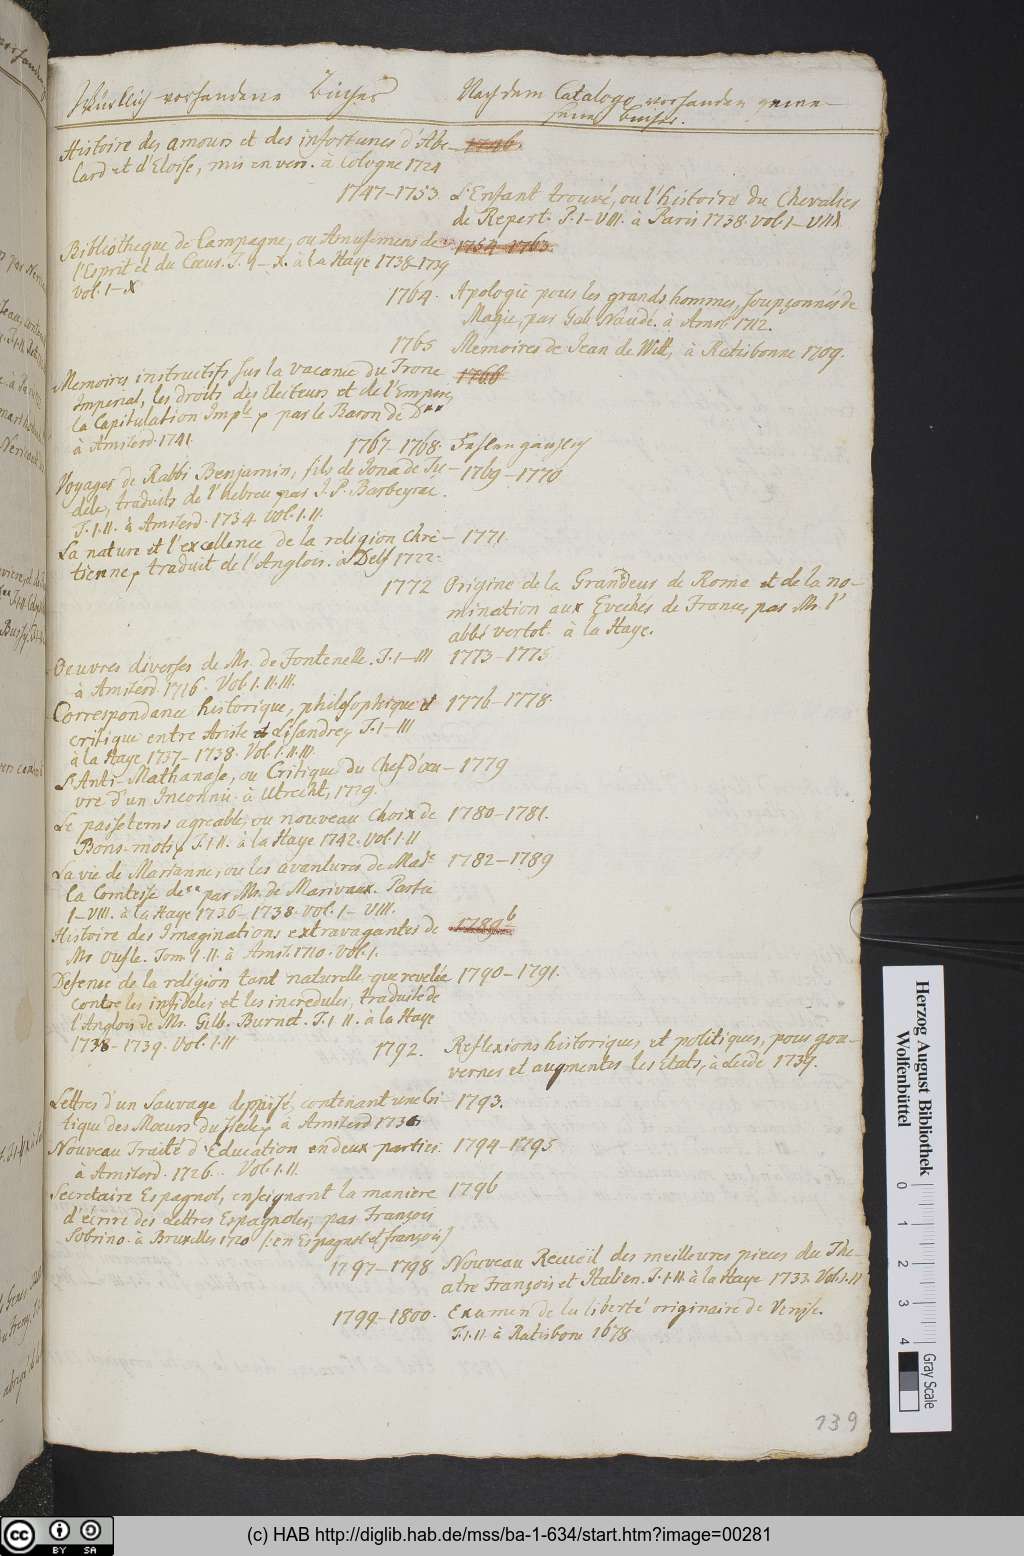 Würklich vorhandene Bücher
Nach dem Catalogo vorhanden gewe-
sene Bücher.
Histoire des amours et des infortunes d'Abe-
lard et d'Eloise, mis en vers. à Cologne 1724
1746
1747–1753. L'Enfant trouvé, ou l'histoire du Chevalier
de Repert. P. I–VIII. à Paris 1738. vol. I–VIII.
Bibliotheque de Campagne, ou Amusemens de
l'Esprit et du Coeur. T. I–X. à la Haye 1738–1739
vol. I–X
1754–1763.
1764. Apologie pour les grands hommes, soupçonnés de
Magie, par Gab. Naudé. à Amst. 1712.
1765 Memoires de Jean de Witt, à Ratisbonne 1709.
Memoires instructifs sur la vacance du Trone
Imperial, les droits des Electeurs et de l'Empire,
la Capitulation Imp.le p par le Baron de D**
à Amsterd. 1741.
1766
1767–1768. Fehlen gänzlich
Voyages de Rabbi Benjamin, fils de Jona de Tu-
dele, traduits de l'hebreu par J. P. Barbeyrac.
T. I. II. à Amsterd. 1734. Vol. I. II.
1769–1770
La nature et l'excellence de la religion chré-
tienne, traduit de l'Anglois. à Delf 1722.
1771.
1772 Origine de la Grandeur de Rome et de la no-
mination aux Evechés de France, par Mr. l'
abbé vertot. à la Haye.
Oeuvres diverses de Mr. de Fontenelle. T. I–III
à Amsterd. 1716. Vol. I. II. III.
1773–1775
Correspondance historique, philosophique et
critique entre Ariste et Lisandre, T. I–III
à la Haye 1737–1738. Vol. I. II. III.
1776–1778.
L'Anti-Mathanase, ou Critique du Chef d'oeu-
vre d'un Inconnu. à Utrecht, 1729.
1779
Le passetems agreable, ou nouveau Choix de
Bons-mots, T. I. II. à la Haye 1742. Vol. I. II
1780–1781.
La vie de Marianne, ou les avantures de Mad.e
la Comtesse de ** par Mr. de Marivaux. Partie
I–VIII. à la Haye 1736–1738. vol. I–VIII.
1782–1789
Histoire des Imaginations extravagantes de
Mr Oufle. Tom. I. II. à Amst. 1710. Vol. I.
1789b
Defense de la religion tant naturelle que revelée
contre les infideles et les incredules, traduite de
l'Anglois de Mr. Gilb. Burnet. T. I. II. à la Haye
1738–1739. Vol. I. II
1790–1791.
1792. Reflexions historiques et politiques, pour gou-
verner et augmenter les Etats, à Leide 1739.
Lettres d'un Sauvage depaisé, contenant une Cri-
tique des Moeurs du siecle, à Amsterd 1738
1793.
Nouveau Traité d'Education en deux parties.
à Amsterd. 1726. Vol. I. II.
1794–1795
Secretaire Espagnol, enseignant la maniere
d'écrire des Lettres Espagnoles, par François
Sobrino. à Bruxelles 1720 (: en Espagnol et françois)
1796
1797–1798 Nouveau Recueil des meilleures pieces du The-
atre François et Italien. T. I. II. à la Haye 1733. Vol. I. II
1799–1800. Examen de la liberté originaire de Venise.
T. I. II. à Ratisbone 1678
139
Herzog August Bibliothek
Wolfenbüttel
0 1 2 3 4
Gray Scale
cc BY SA
(c) HAB http://diglib.hab.de/mss/ba-1-634/start.htm?image=00281